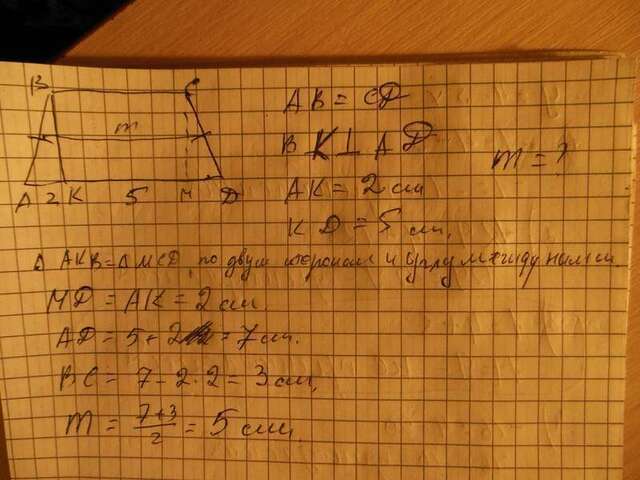 B C
m
A 2 K 5 M D
AB = CD
BK ⊥ AD
m = ?
AK = 2 см
KD = 5 см.
Δ AKB = Δ MCD, по двум сторонам и углу между ними
MD = AK = 2 см.
AD = 5 + 2 = 7 см.
BC = 7 - 2 · 2 = 3 см,
m = \frac{7+3}{2} = 5 см.